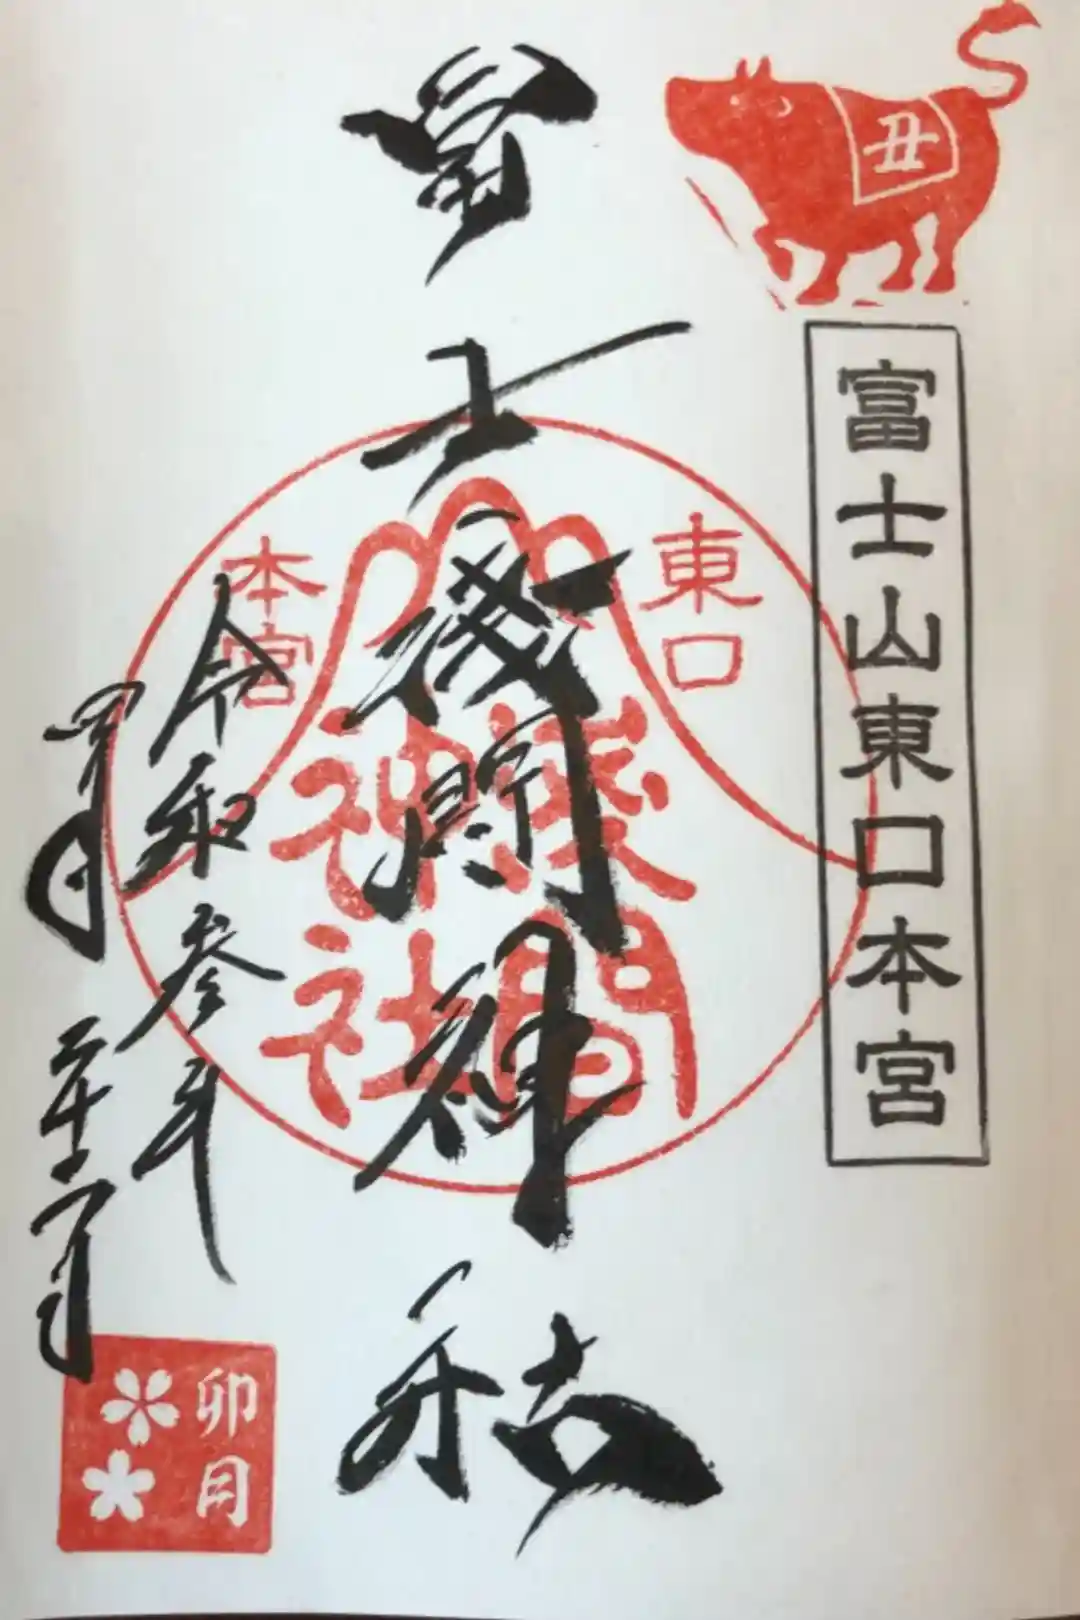 丑
富士山東口本宮
冨士浅間神社
東口
本宮
浅間
神社
令和参年
四月二十六日
卯月